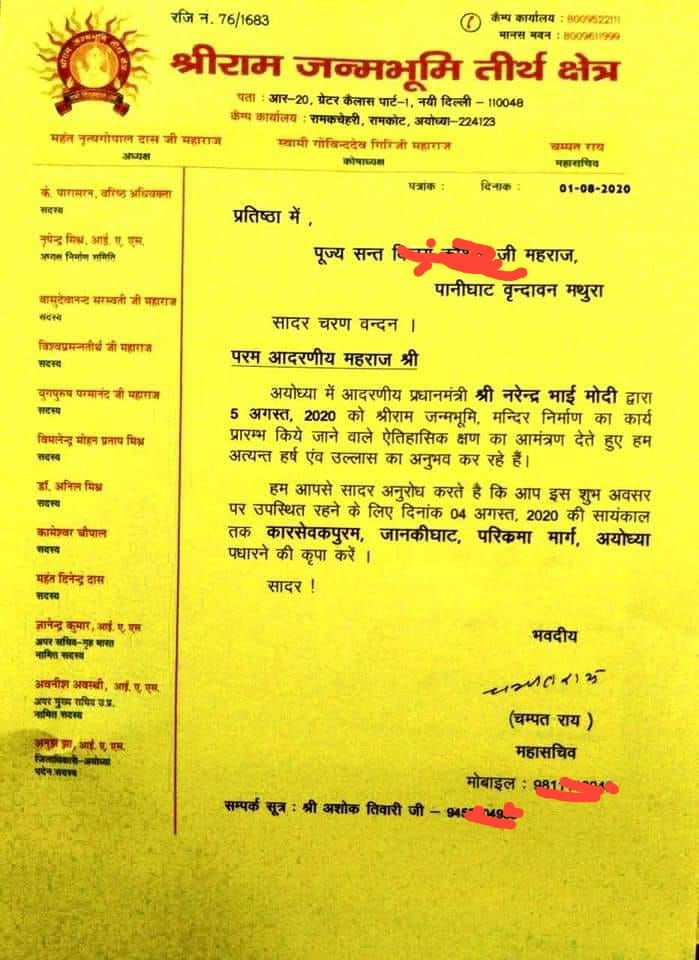 रजि न. 76/1683
कैम्प कार्यालय : 8009522111
मानस भवन : 8009611999
श्रीराम जन्मभूमि तीर्थ क्षेत्र
पता : आर-20, ग्रेटर कैलास पार्ट-1, नयी दिल्ली - 110048
कैम्प कार्यालय : रामकचेहरी, रामकोट, अयोध्या-224123
महंत नृत्यगोपाल दास जी महाराज
अध्यक्ष
स्वामी गोविन्ददेव गिरिजी महाराज
कोषाध्यक्ष
चम्पत राय
महासचिव
के. पारासरन, वरिष्ठ अधिवक्ता
सदस्य
नृपेन्द्र मिश्र, आई. ए. एस.
अध्यक्ष निर्माण समिति
वासुदेवानन्द सरस्वती जी महाराज
सदस्य
विश्वप्रसन्नतीर्थ जी महाराज
सदस्य
युगपुरुष परमानंद जी महाराज
सदस्य
विमलेन्द्र मोहन प्रताप मिश्र
सदस्य
डॉ. अनिल मिश्र
सदस्य
कामेश्वर चौपाल
सदस्य
महंत दिनेन्द्र दास
सदस्य
ज्ञानेन्द्र कुमार, आई. ए. एस
अपर सचिव-गृह भारत
नामित सदस्य
अवनीश अवस्थी, आई. ए. एस.
अपर मुख्य सचिव उ.प्र.
नामित सदस्य
अनुज झा, आई. ए. एम.
जिलाधिकारी-अयोध्या
पदेन सदस्य
पत्रांक : दिनांक : 01-08-2020
प्रतिष्ठा में ,
पूज्य सन्त जी महराज,
पानीघाट वृन्दावन मथुरा
सादर चरण वन्दन ।
परम आदरणीय महराज श्री
अयोध्या में आदरणीय प्रधानमंत्री श्री नरेन्द्र भाई मोदी द्वारा
5 अगस्त, 2020 को श्रीराम जन्मभूमि, मन्दिर निर्माण का कार्य
प्रारम्भ किये जाने वाले ऐतिहासिक क्षण का आमंत्रण देते हुए हम
अत्यन्त हर्ष एंव उल्लास का अनुभव कर रहे हैं।
हम आपसे सादर अनुरोध करते है कि आप इस शुभ अवसर
पर उपस्थित रहने के लिए दिनांक 04 अगस्त, 2020 की सायंकाल
तक कारसेवकपुरम, जानकीघाट, परिक्रमा मार्ग, अयोध्या
पधारने की कृपा करें ।
सादर !
भवदीय
चम्पतराय
(चम्पत राय )
महासचिव
मोबाइल :
सम्पर्क सूत्र : श्री अशोक तिवारी जी -